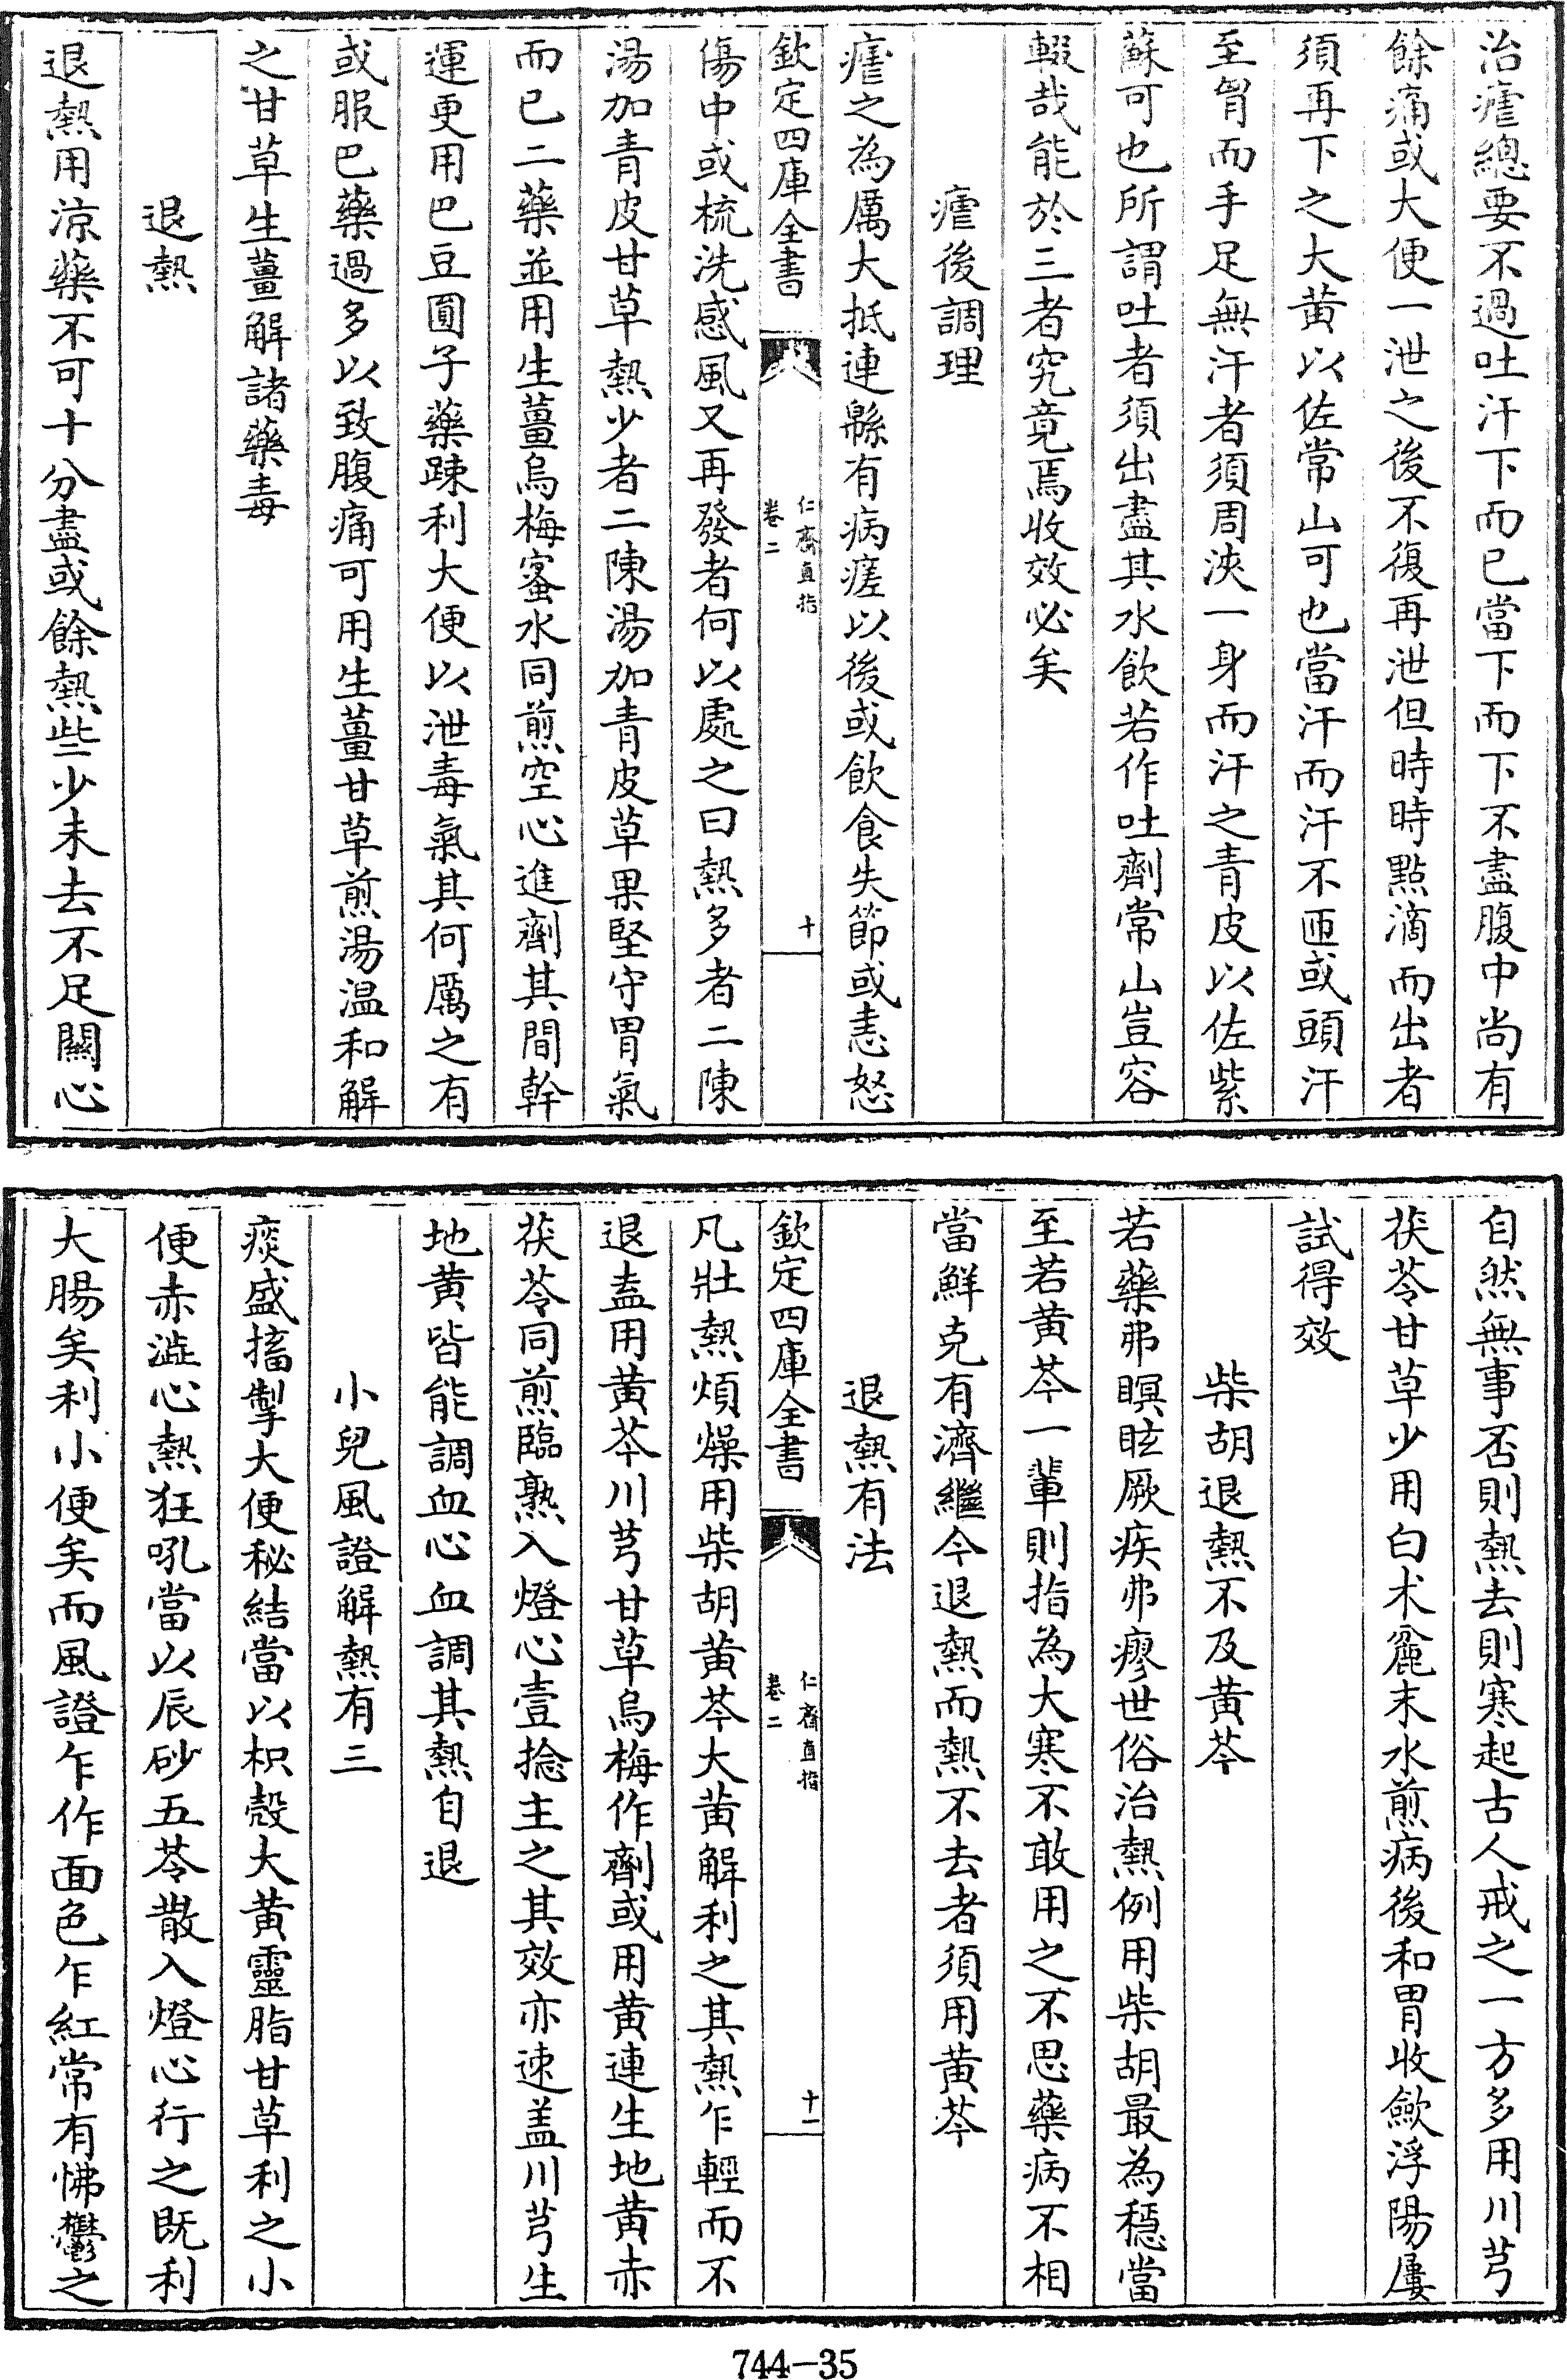 治瘧總要不過吐汗下而已當下而下不盡腹中尚有
餘痛或大便一泄之後不復再泄但時時點滴而出者
須再下之大黄以佐常山可也當汗而汗不匝或頭汗
至胷而手足無汗者須周浹一身而汗之青皮以佐紫
蘇可也所謂吐者須出盡其水飲若作吐劑常山豈容
輟哉能於三者究竟焉收效必矣
瘧後調理
瘧之為厲大抵連緜有病瘥以後或飲食失節或恚怒
欽定四庫全書
仁齋直指
卷二
十
傷中或梳洗感風又再發者何以處之曰熱多者二陳
湯加青皮甘草熱少者二陳湯加青皮草果堅守胃氣
而已二藥並用生薑烏梅蜜水同煎空心進劑其間幹
運更用巴豆圓子藥踈利大便以泄毒氣其何厲之有
或服巴藥過多以致腹痛可用生薑甘草煎湯温和解
之甘草生薑解諸藥毒
退熱
退熱用涼藥不可十分盡或餘熱些少未去不足關心
自然無事否則熱去則寒起古人戒之一方多用川芎
茯苓甘草少用白术麄末水煎病後和胃收歛浮陽屢
試得效
柴胡退熱不及黄芩
若藥弗瞑眩厥疾弗瘳世俗治熱例用柴胡最為穩當
至若黄芩一輩則指為大寒不敢用之不思藥病不相
當鮮克有濟繼今退熱而熱不去者須用黄芩
退熱有法
欽定四庫全書
仁齋直指
卷二
十一
凡壯熱煩燥用柴胡黄芩大黄解利之其熱乍輕而不
退盍用黄芩川芎甘草烏梅作劑或用黄連生地黄赤
茯苓同煎臨熟入燈心壹捻主之其效亦速盖川芎生
地黄皆能調血心血調其熱自退
小兒風證解熱有三
痰盛搐掣大便秘結當以枳殻大黄靈脂甘草利之小
便赤澁心熱狂吼當以辰砂五苓散入燈心行之既利
大腸矣利小便矣而風證乍作面色乍紅常有怫鬱之
744-35